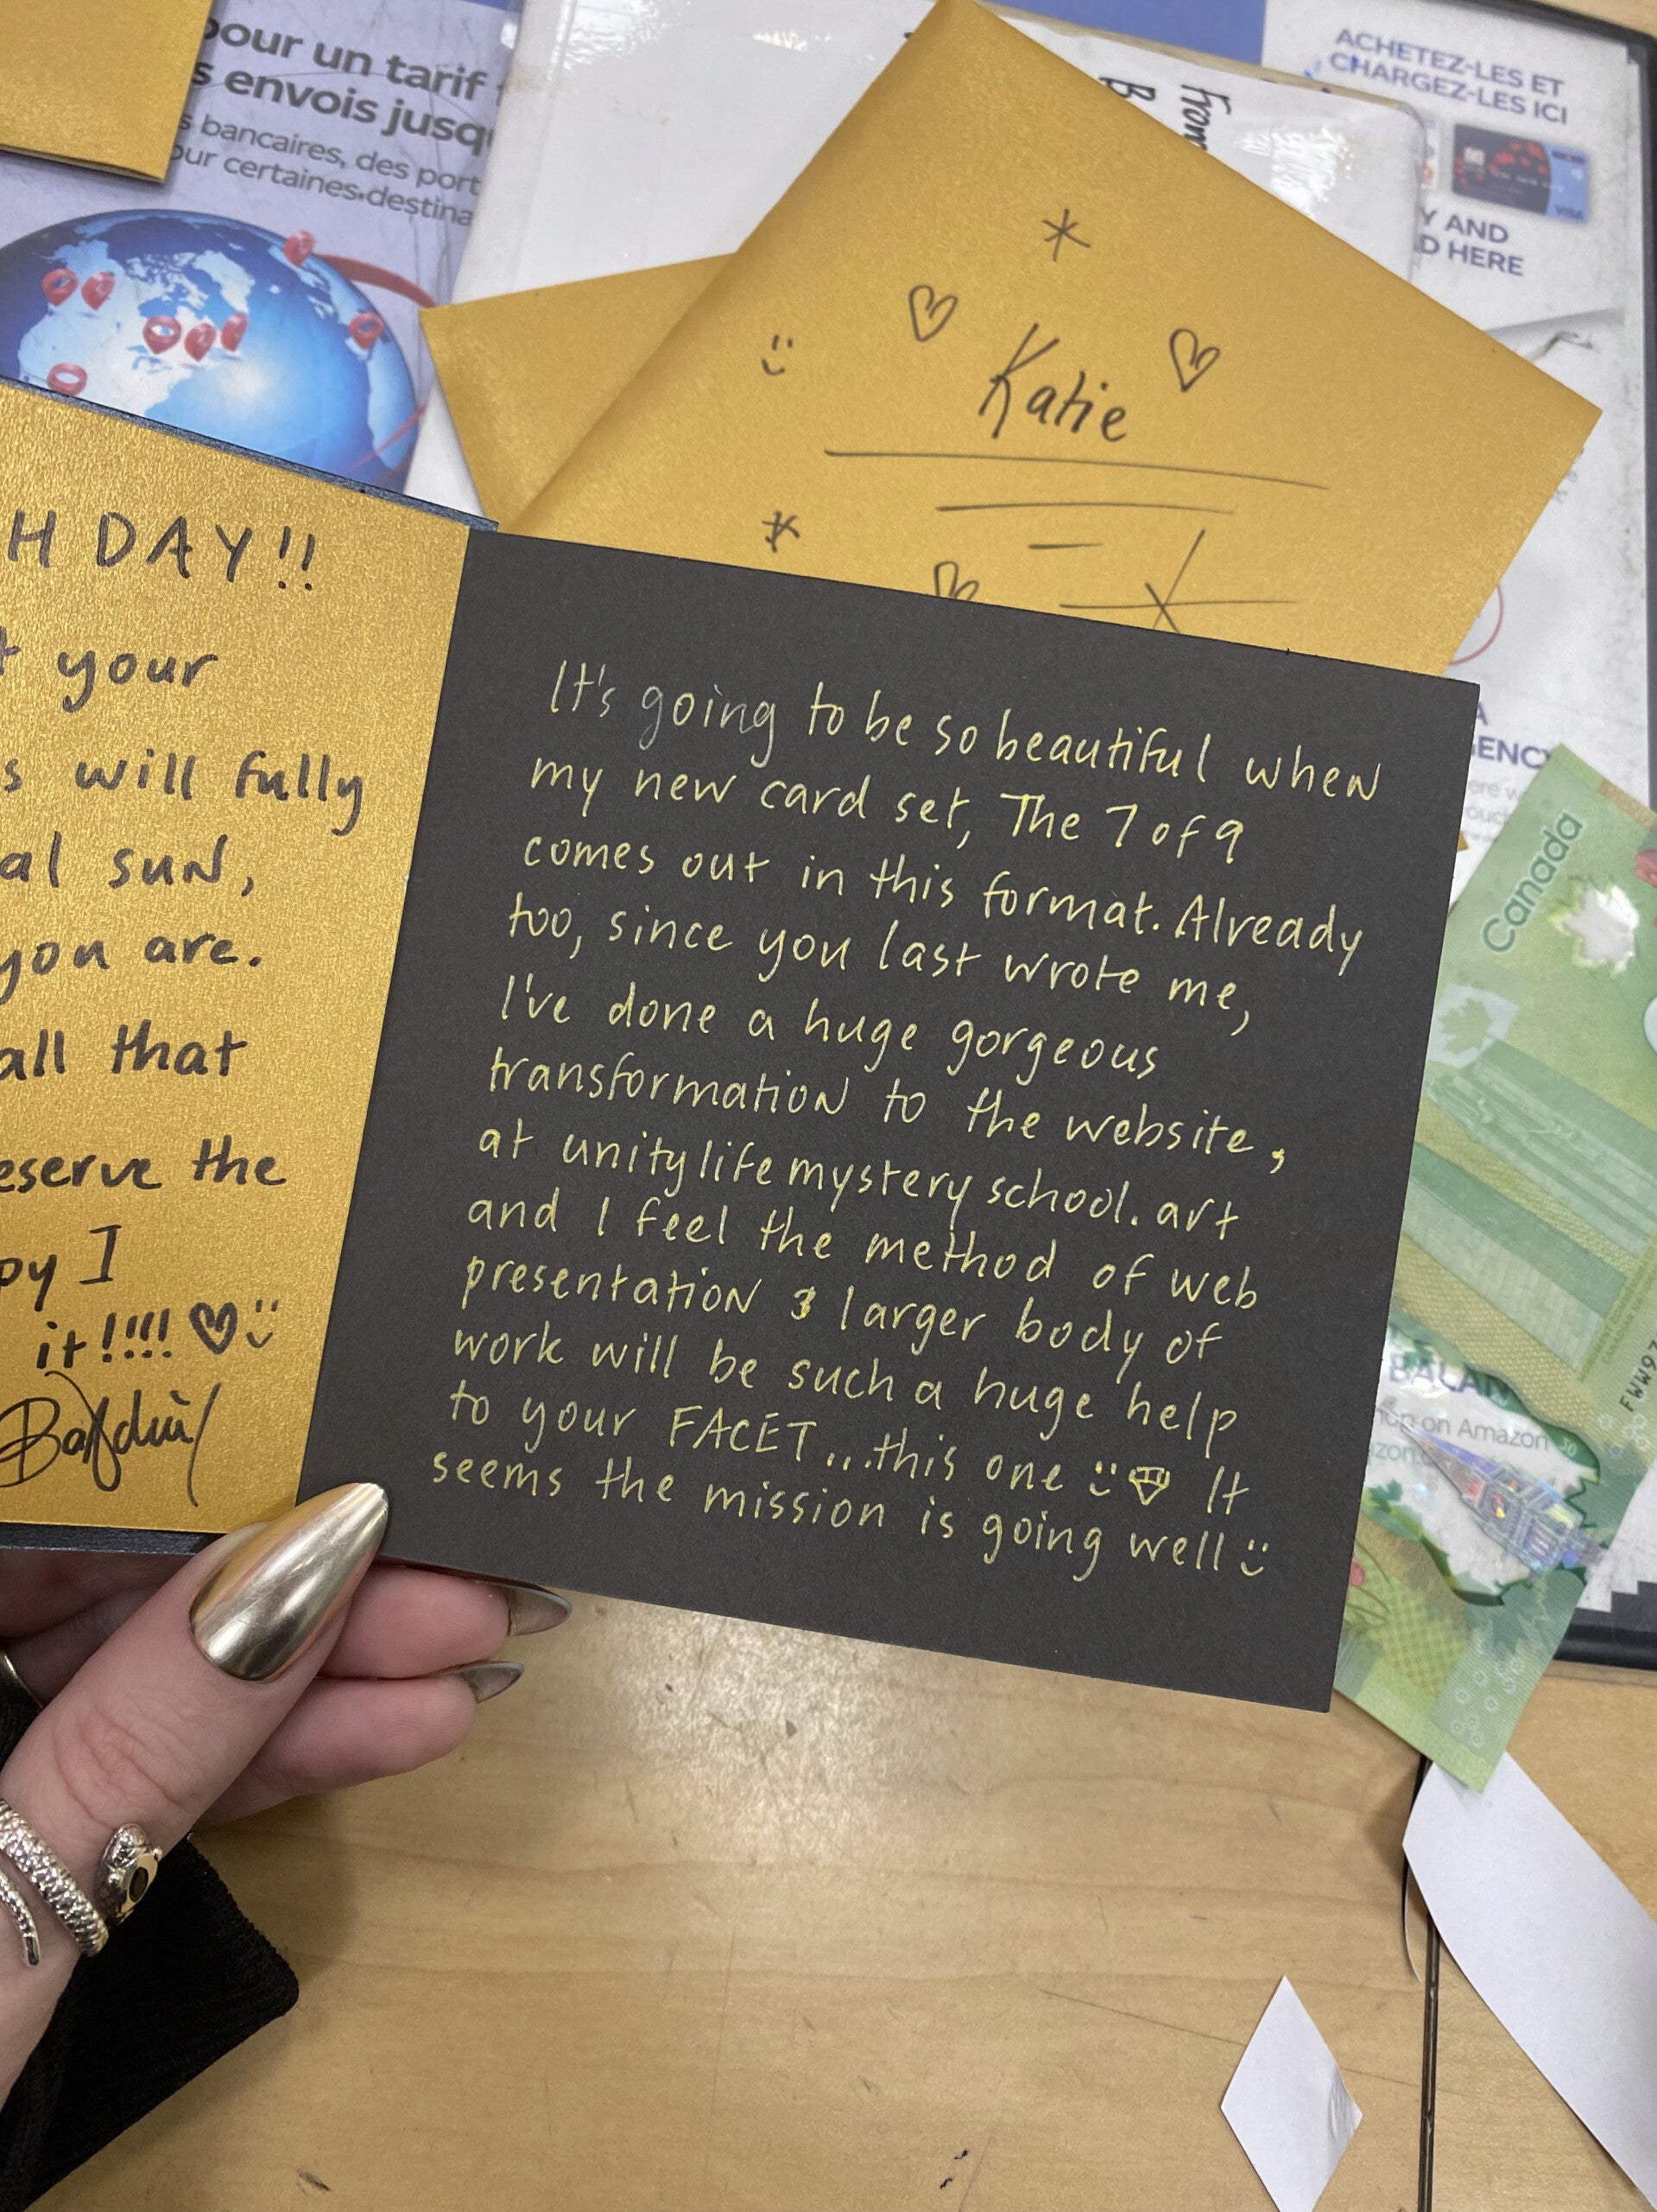 pour un tarif
s envois jusqu
s bancaires, des port
our certaines destina
From
ACHETEZ-LES ET
CHARGEZ-LES ICI
VISA
Y AND
D HERE
Katie
H DAY!!
your
s will fully
al sun,
you are.
all that
eserve the
py I
it!!!!
It's going to be so beautiful when
my new card set, The 7 of 9
comes out in this format. Already
too, since you last wrote me,
I've done a huge gorgeous
transformation to the website,
at unitylifemysteryschool.art
and I feel the method of web
presentation & larger body of
work will be such a huge help
to your FACET...this one It
seems the mission is going well
ENCY
Canada
BALAN
op on Amazon
FWW97